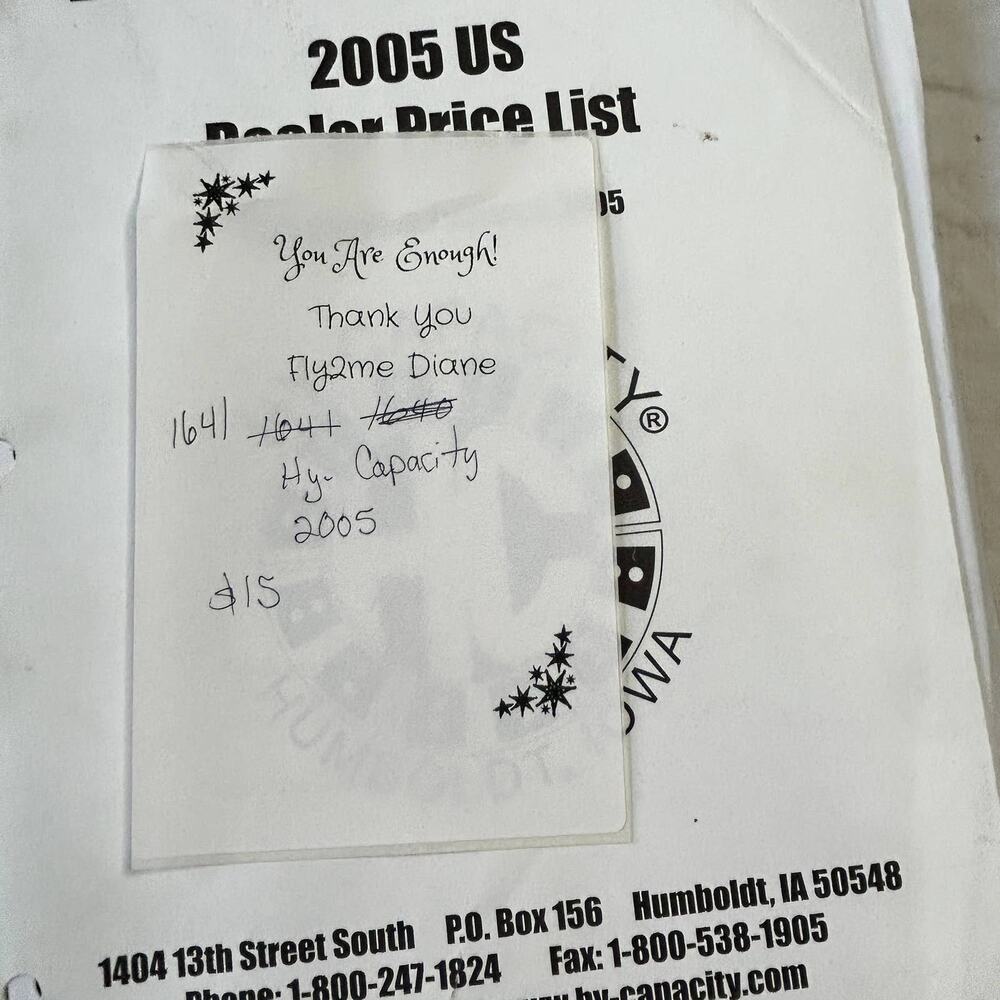 2005 US
Dealer Price List
05
You Are Enough!
Thank You
Fly2me Diane
1641 1641 1640
Hy- Capacity
2005
$15
TY®
HUMBOLDT, IOWA
1404 13th Street South P.O. Box 156 Humboldt, IA 50548
Phone: 1-800-247-1824 Fax: 1-800-538-1905
www.hy-capacity.com